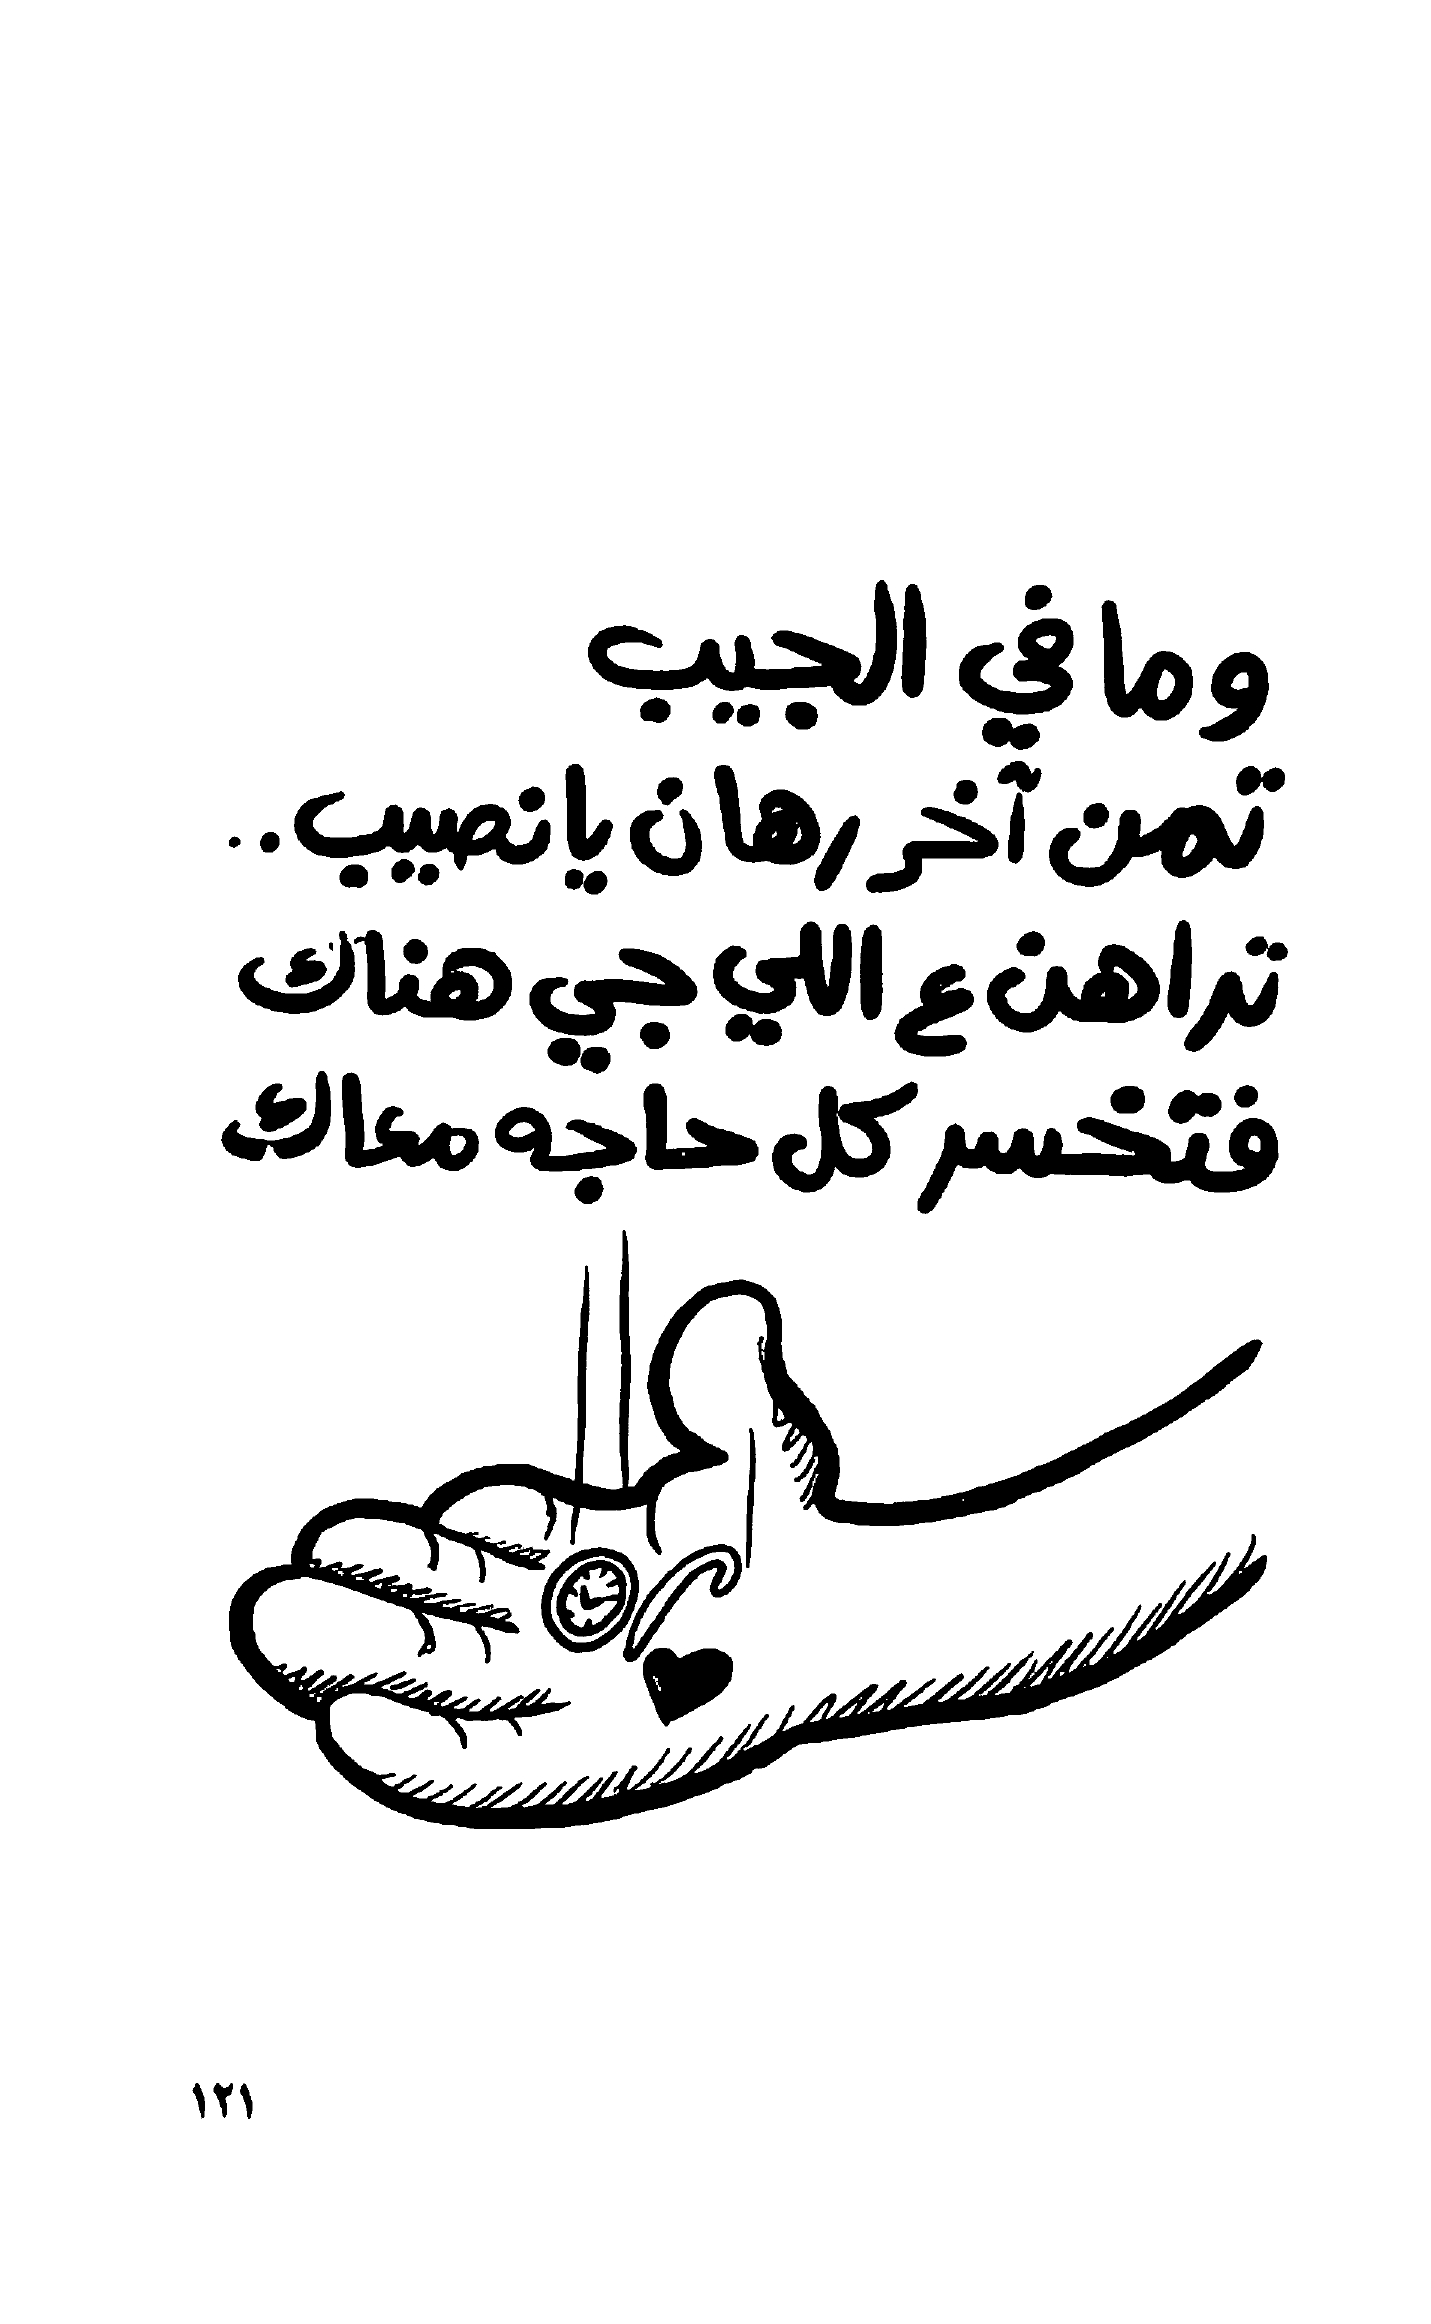 وما في الجيب
تمن آخر رهان يا نصيب..
تراهن ع اللي جي هناك
فتخسر كل حاجه معاك
١٢١